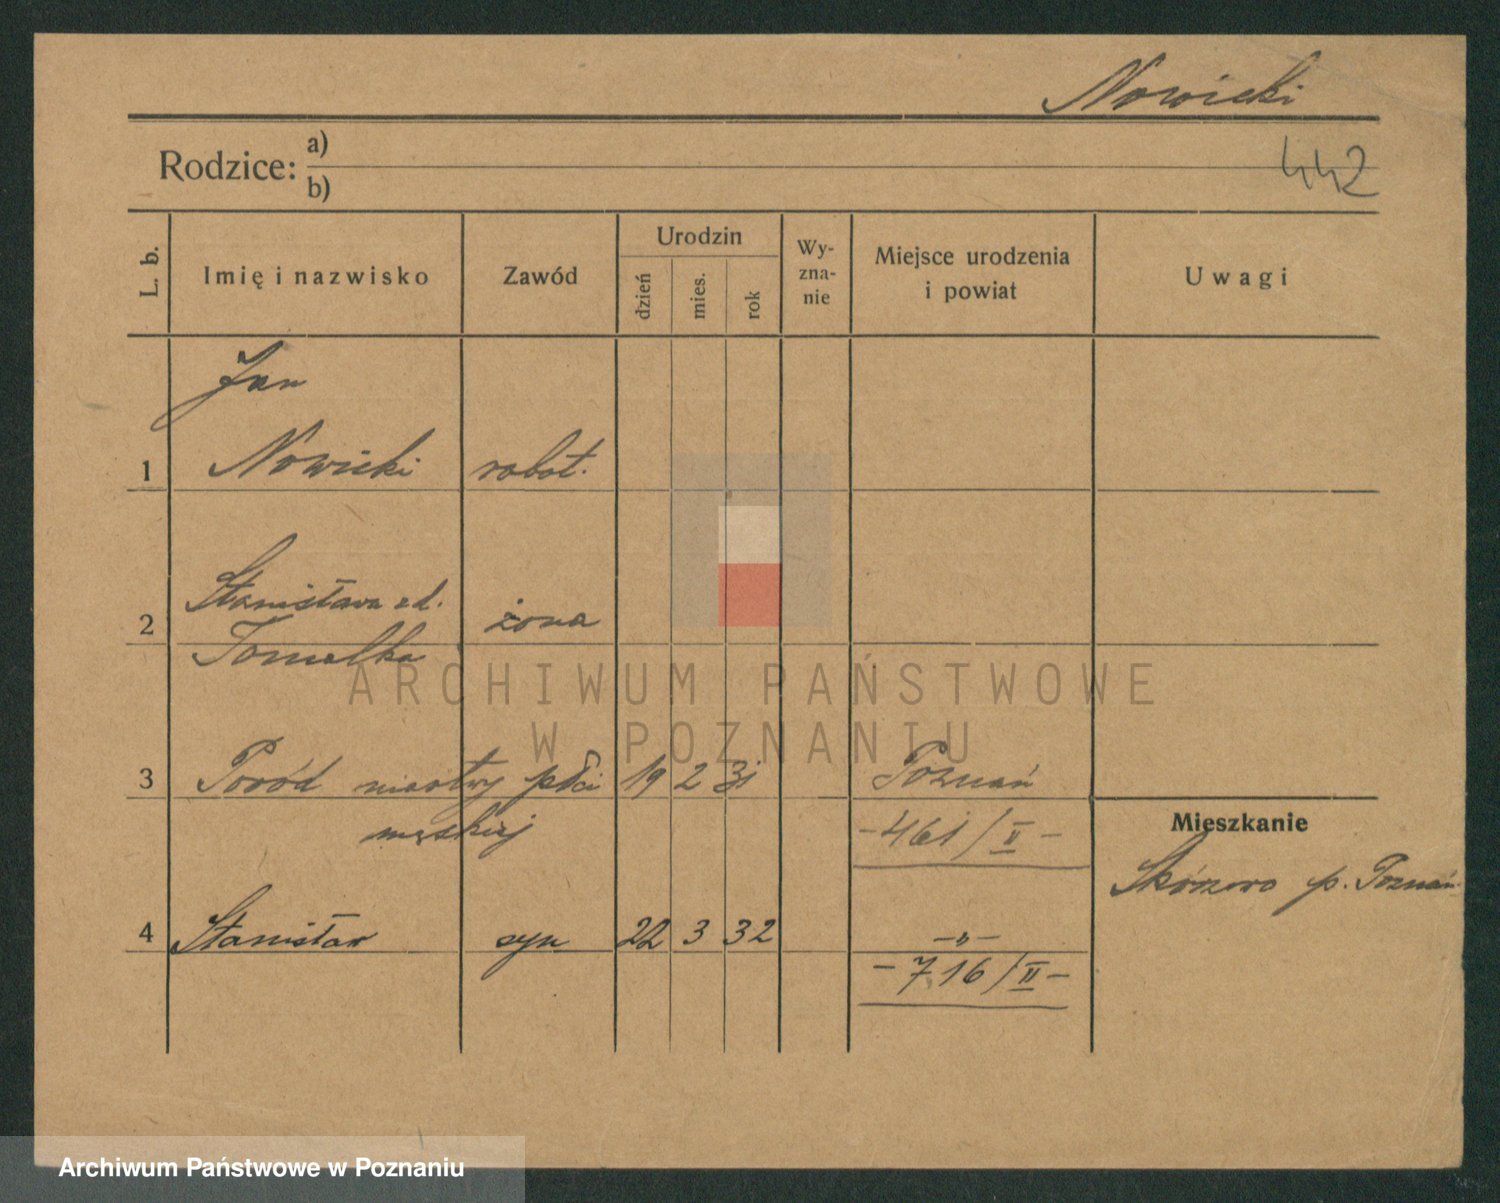 Nowicki
Rodzice: a)
b)
442
L. b.
Imię i nazwisko
Zawód
Urodzin
dzień
mies.
rok
Wy-
zna-
nie
Miejsce urodzenia
i powiat
Uwagi
Jan
1 Nowicki robot.
Stanisława zd.
2 żona
Tomalka
3 Poród niastwy płci 19 2 31 Poznań
męskiej -461/II-
Mieszkanie
Skórzewo p. Poznań
4 Stanisław syn 22 3 32 -"-
-716/II-
ARCHIWUM PAŃSTWOWE
W POZNANIU
Archiwum Państwowe w Poznaniu